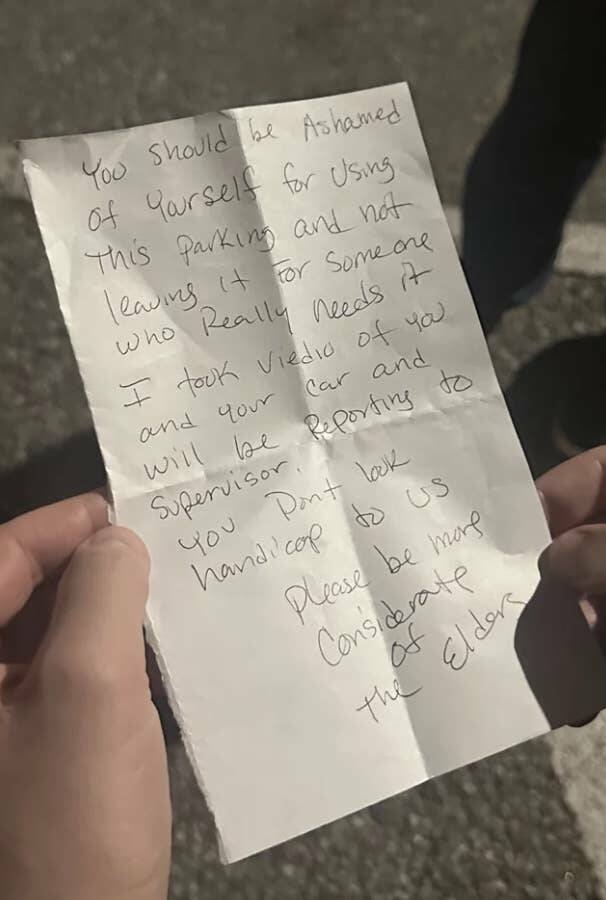 You should be Ashamed
of Yourself for Using
this parking and not
leaving it For someone
who Really Needs it
I took Viedio of you
and your car and
will be Reporting to
Supervisor.
You Dont look
handicap to us
please be more
Considerate
of
the Elders